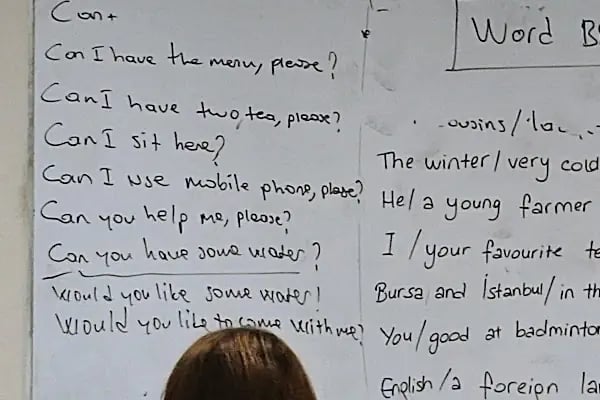 Can+
Can I have the menu, please?
Can I have two tea, please?
Can I sit here?
Can I use mobile phone, please?
Can you help me, please?
Can you have some water?
Would you like some water!
Would you like to come with me?
Word B
ousins/
The winter/very cold
He/a young farmer
I/your favourite te
Bursa and İstanbul/in th
You/good at badminton
English/a foreign la